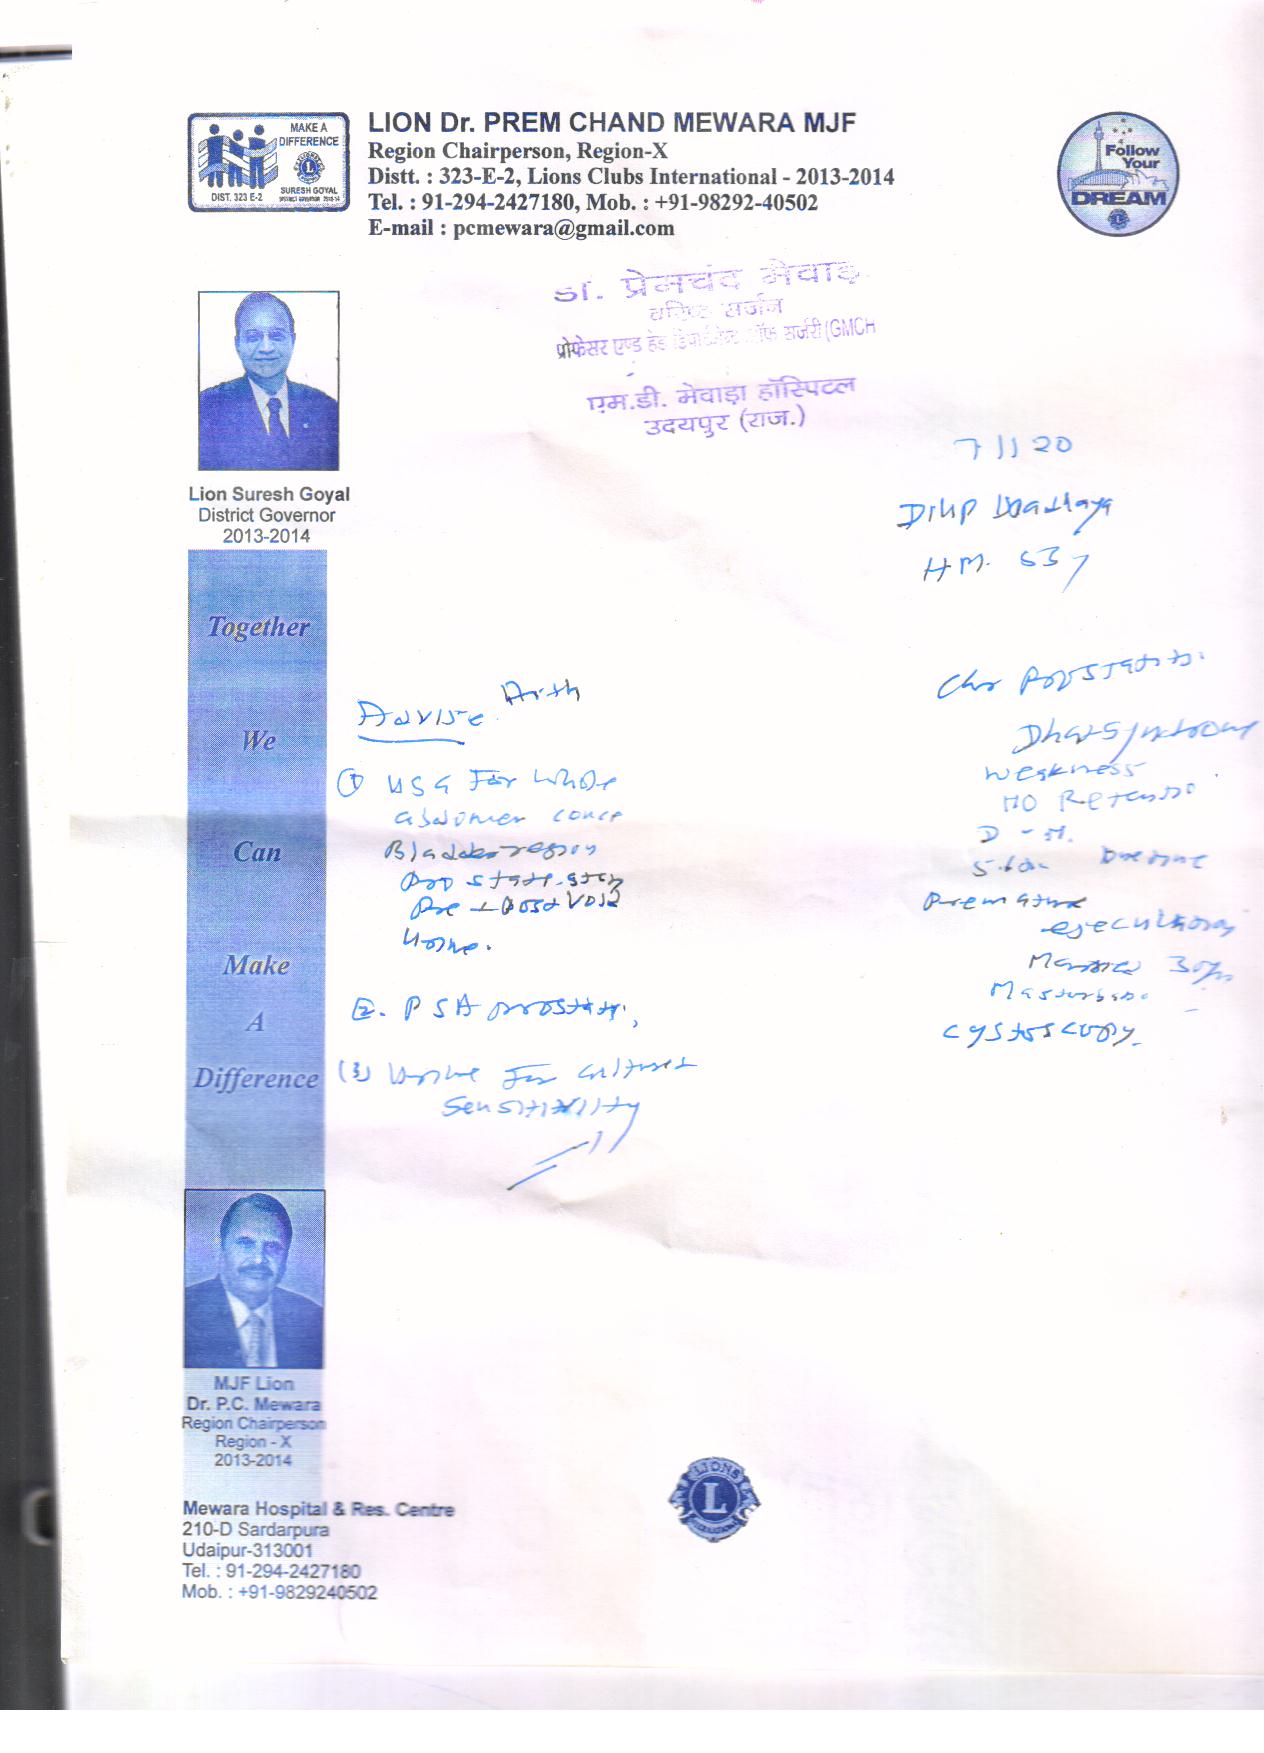 MAKE A
DIFFERENCE
SURESH GOYAL
DIST. 323 E-2
LION Dr. PREM CHAND MEWARA MJF
Region Chairperson, Region-X
Distt. : 323-E-2, Lions Clubs International - 2013-2014
Tel. : 91-294-2427180, Mob. : +91-98292-40502
E-mail : pcmewara@gmail.com
Follow
Your
DREAM
डा. प्रेमचंद मेवाड़ा
वरिष्ठ सर्जन
प्रोफेसर एण्ड हेड डिपार्टमेन्ट ऑफ सर्जरी (GMCH
एम.डी. मेवाड़ा हॉस्पिटल
उदयपुर (राज.)
Lion Suresh Goyal
District Governor
2013-2014
7 11 20
Dilip
H M. 53 y
Together
We
Can
Make
A
Difference
Advise
① USG For Whole
abdomen
Bladder region
Prostate
Pre + Post Void
Urine.
2. PSA
(3) Urine For Culture
Sensitivility
Chr Prostatitis.
Dhat Syndrome
Weakness
D - M.
Premature
ejeculation
Married 30 yr
cystoscopy
MJF Lion
Dr. P.C. Mewara
Region Chairperson
Region - X
2013-2014
LIONS
L
INTERNATIONAL
Mewara Hospital & Res. Centre
210-D Sardarpura
Udaipur-313001
Tel. : 91-294-2427180
Mob. : +91-9829240502